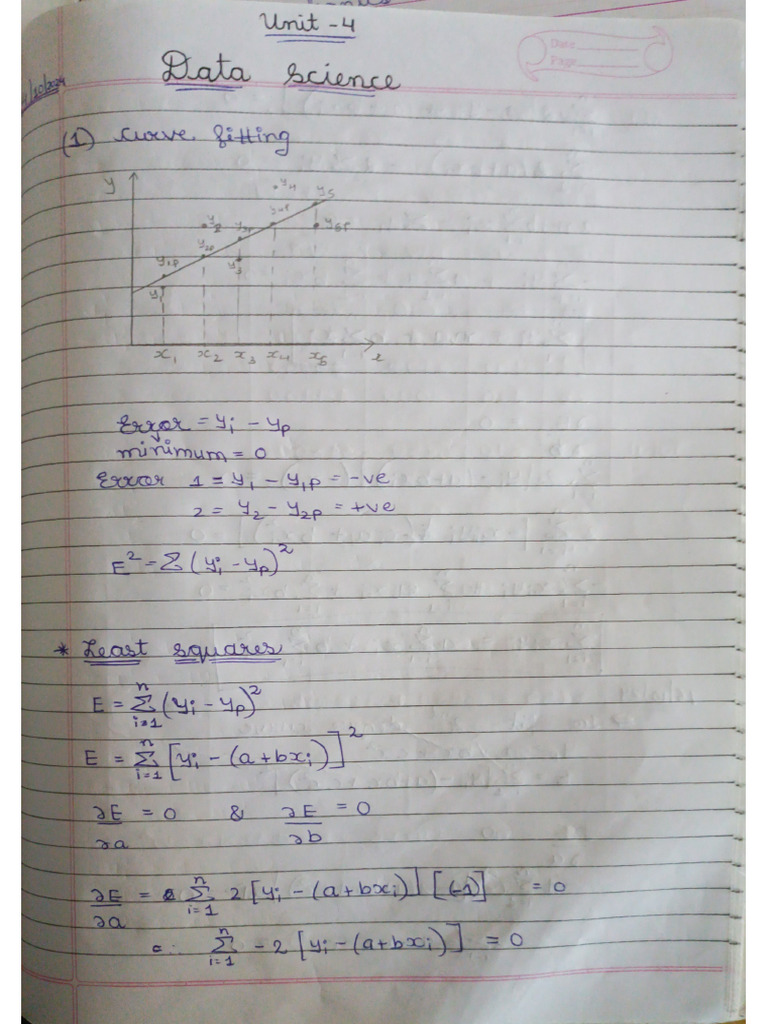 Unit - 4
Data science
/10/2024
Date
Page
(1) Curve fitting
y
y4
y5
y2
y3p
y4p
y5p
y2p
y1p
y3
y1
x1 x2 x3 x4 x5 x
Error = yi - yp
minimum = 0
Error 1 = y1 - y1p = -ve
2 = y2 - y2p = +ve
E² = Σ(yi - yp)²
* Least squares
E = Σ_{i=1}^{n} (yi - yp)²
E = Σ_{i=1}^{n} [yi - (a + bxi)]²
∂E/∂a = 0 & ∂E/∂b = 0
∂E/∂a = Σ_{i=1}^{n} 2[yi - (a + bxi)] [(-1)] = 0
∴ Σ_{i=1}^{n} -2[yi - (a + bxi)] = 0